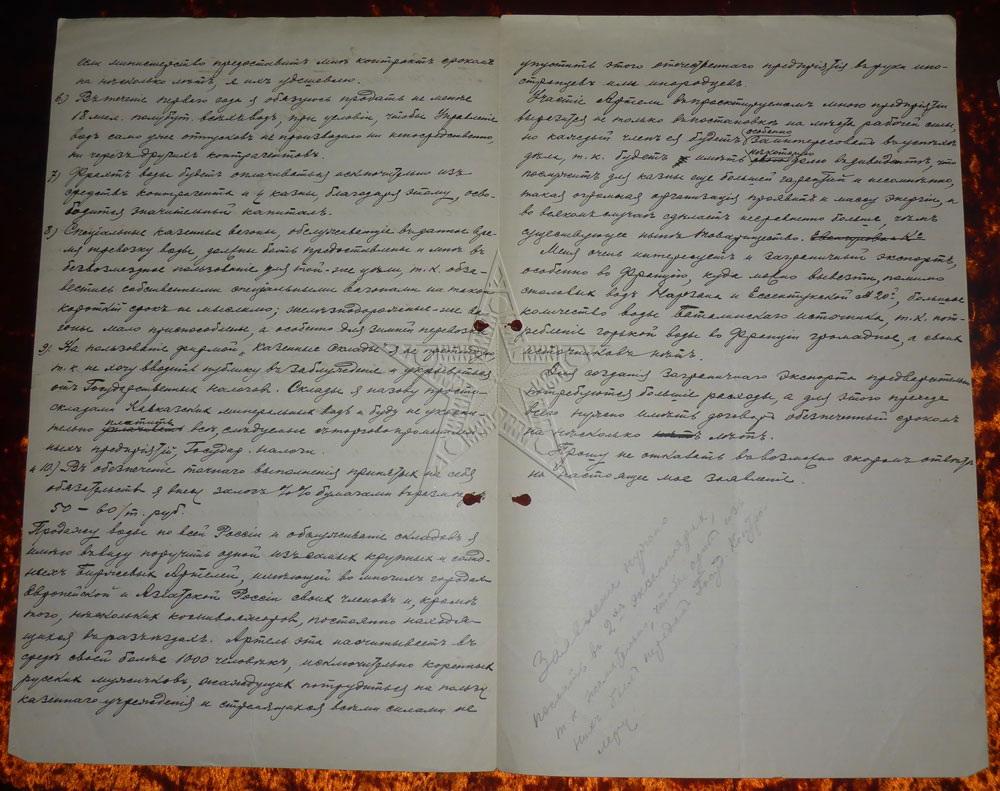 сли министерство предоставитъ мнѣ контрактъ срокомъ
на нѣсколько лѣтъ, я ихъ удешевлю.
6.) Въ теченіе перваго года я обязуюсь продать не менѣе
18 мил. полубут. всѣхъ водъ, при условіи, чтобы Управленіе
водъ само уже отпусковъ не производило ни непосредственно,
ни черезъ другихъ контрагентовъ.
7.) Фрахтъ воды будетъ оплачиваться исключительно изъ
средствъ контрагента и у казны, благодаря этому, осво-
бодится значительный капиталъ.
8.) Спеціальные казенные вагоны, обслуживающіе въ данное вре-
мя перевозку воды, должны быть предоставлены и мнѣ въ
безвозмездное пользованіе для той-же цѣли, т.к. обза-
вестись собственными спеціальными вагонами въ такой
короткій срокъ не мыслимо; желѣзнодорожные-же ва-
гоны мало приспособлены, а особенно для зимней перевозки.
9.) На пользованіе фирмой „Казенные склады" я не претендую,
т.к. не могу вводить публику въ заблужденіе и укрываться
отъ Государственныхъ налоговъ. Склады я назову просто
складами Кавказскихъ минеральныхъ водъ и буду неукосни-
тельно платить всѣ, слѣдуемые съ торгово промышлен-
ныхъ предпріятій, Государ. налоги.
и 10.) Въ обезпеченіе точнаго выполненія принятыхъ на себя
обязательствъ я внесу залогъ %% бумагами въ размѣрѣ
50 – 60/т. руб.
Продажу воды по всей Россіи и обслуживаніе складовъ я
имѣю въ виду поручить одной изъ самыхъ крупныхъ и солид-
ныхъ Биржевыхъ Артелей, имѣющей во многихъ городахъ
Европейской и Азіатской Россіи своихъ членовъ и, кромѣ
того, нѣсколькихъ коммивояжеровъ, постоянно находя-
щихся въ разъѣздахъ. Артель эта насчитываетъ въ
средѣ своей болѣе 1000 человѣкъ, исключительно коренныхъ
русскихъ мужичковъ, жаждущихъ потрудиться на пользу
казеннаго учрежденія и стремящихся всѣми силами не
упустить этого отечественнаго предпріятія въ руки ино-
странцевъ или инородцевъ.
Участіе Артели въ проектируемомъ мною предпріятіи
выразится не только въ постановкѣ на мѣста рабочей силы,
но каждый членъ ея будетъ особенно заинтересованъ въ успѣхѣ
дѣла, т.к. будетъ имѣть нѣкоторую долю въ дивидентѣ, что
послужитъ для казны еще большей гарантіей и несомнѣнно,
такая огромная организація проявитъ и массу энергіи, и
во всякомъ случаѣ сдѣлаетъ несравненно больше, чѣмъ
существующее нынѣ товарищество.
Меня очень интересуетъ и заграничный экспортъ,
особенно во Францію, куда можно вывезти, помимо
столовыхъ водъ Нарзана и Ессентукской №20й, большое
количество воды Баталинскаго источника, т.к. пот-
ребленіе горькой воды во Франціи громадное, а своихъ
источниковъ нѣтъ.
Для созданія заграничнаго экспорта предварительно
потребуются большіе расходы, а для этого прежде
всего нужно имѣть договоръ обезпеченный срокомъ
на нѣсколько лѣтъ.
Прошу не отказать въ возможно скоромъ отвѣтѣ
на настоящее мое заявленіе.
Заявленіе нужно
послать въ 2-хъ экземплярахъ,
т.к. желательно, чтобы одинъ изъ
нихъ былъ переданъ Госуд. Контро-
леру